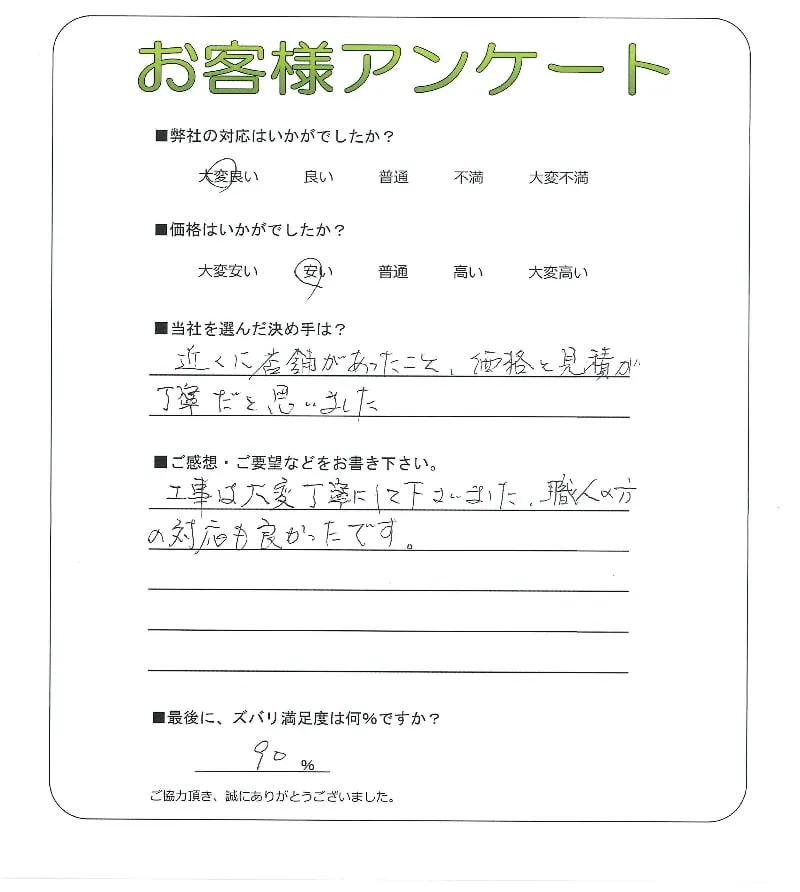 お客様アンケート
■弊社の対応はいかがでしたか？
大変良い 良い 普通 不満 大変不満
■価格はいかがでしたか？
大変安い 安い 普通 高い 大変高い
■当社を選んだ決め手は？
近くに店舗があったこと、価格と見積が
丁寧だと思いました
■ご感想・ご要望などをお書き下さい。
工事は大変丁寧にして下さいました、職人の方
の対応も良かったです。
■最後に、ズバリ満足度は何%ですか？
90 %
ご協力頂き、誠にありがとうございました。